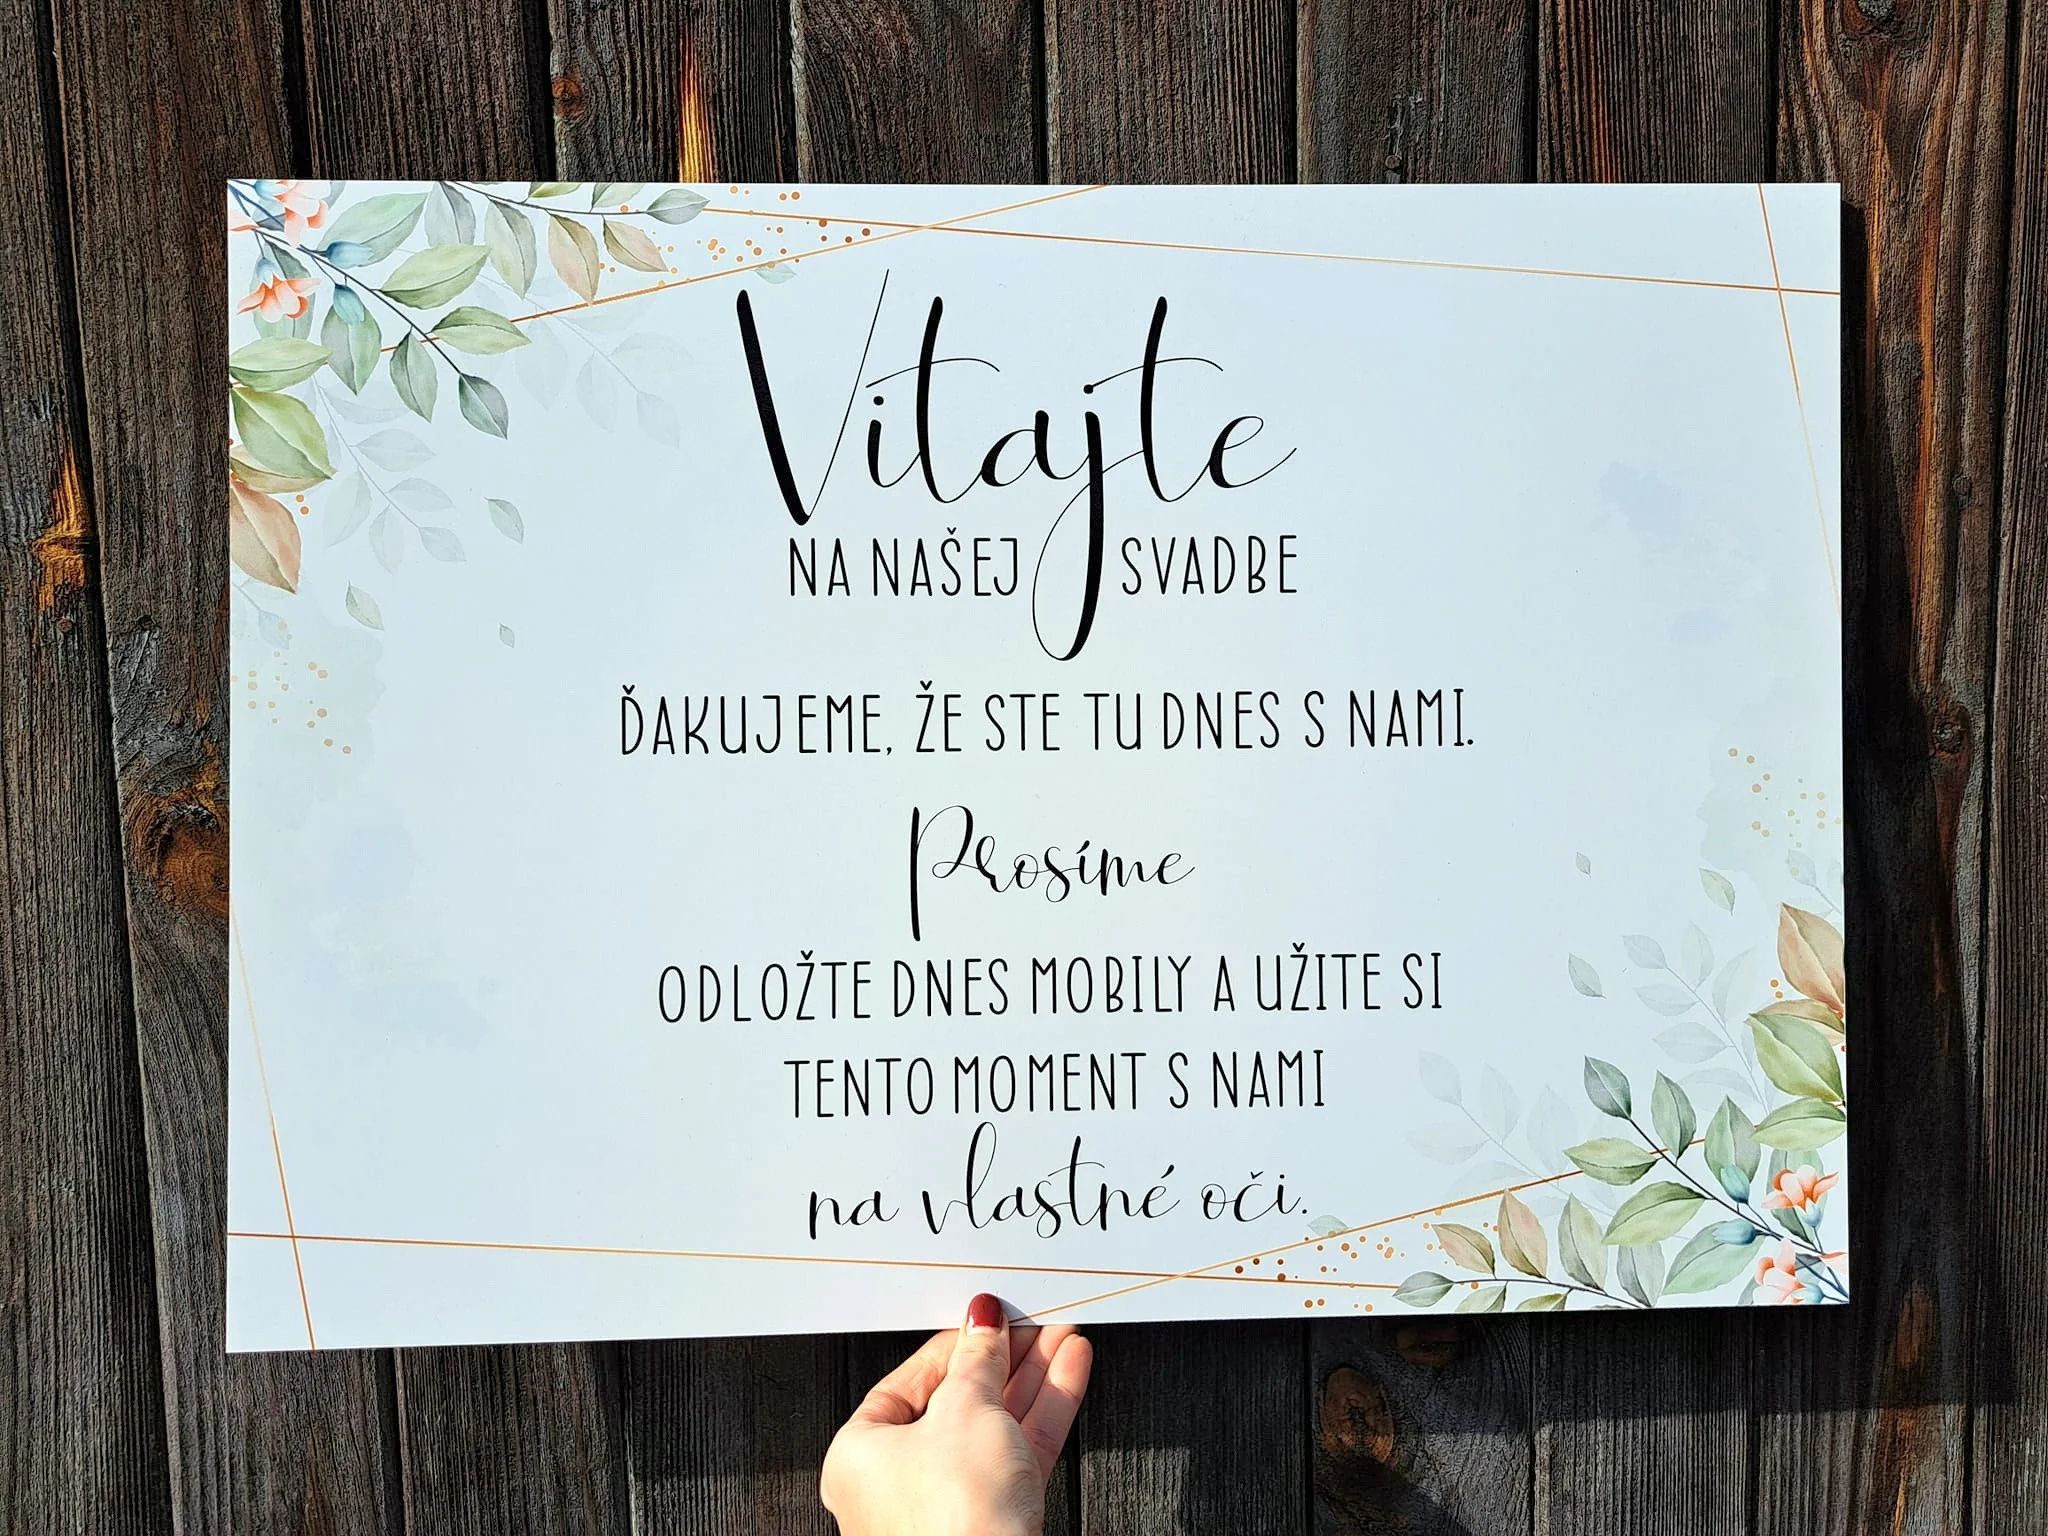 Vitajte
NA NAŠEJ SVADBE
ĎAKUJEME, ŽE STE TU DNES S NAMI.
Prosíme
ODLOŽTE DNES MOBILY A UŽITE SI
TENTO MOMENT S NAMI
na vlastné oči.